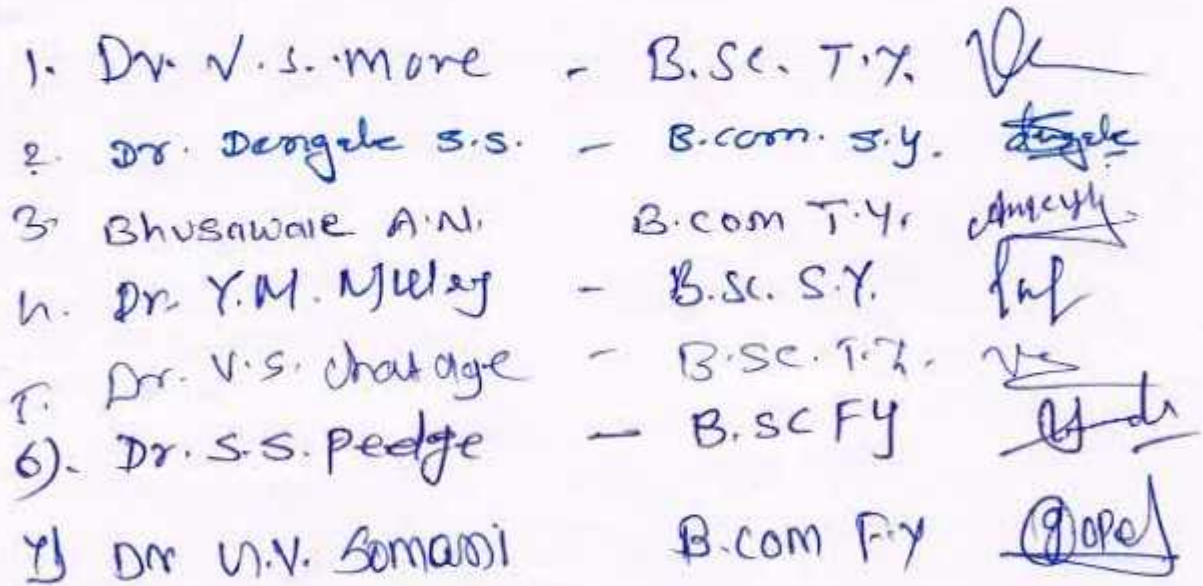 1. Dr. V.S. More - B.Sc. T.Y.
2. Dr. Dengale S.S. - B.com. S.Y. Dengale
3. Bhusaware A.N. B.com T.Y.
4. Dr. Y.M. Muley - B.Sc. S.Y.
5. Dr. V.S. Chatage - B.SC. T.Y.
6). Dr. S.S. Pedge - B.SC FY
7) Dr U.V. Somani B.com F.Y Gopal